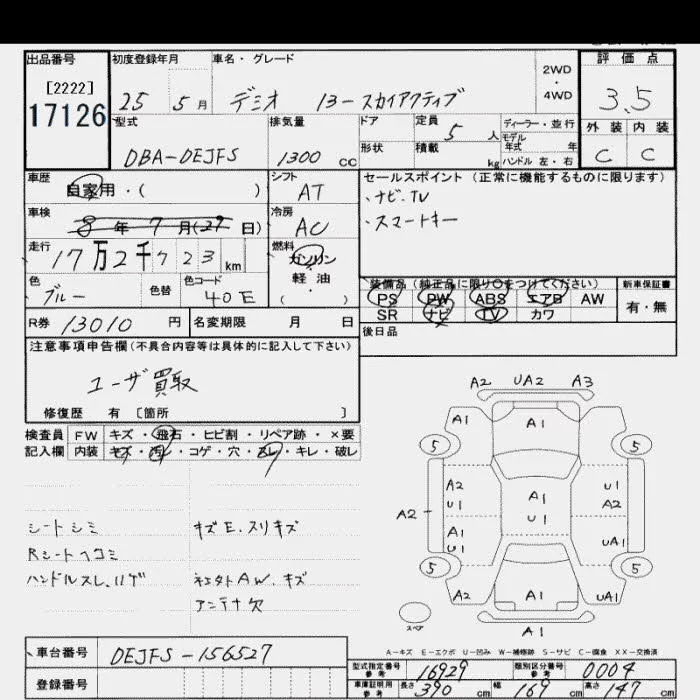 出品番号 初度登録年月 車名・グレード 2WD・4WD 評価点
[2222]
17126
25 5月 デミオ 13-スカイアクティブ 3.5
型式 排気量 ドア 定員 5人 ディーラー・並行 外装 内装
モデル年式 年
DBA-DEJFS 1300cc 形状 積載 kg ハンドル 左・右 C C
車歴 自家用・( ) シフト AT セールスポイント (正常に機能するものに限ります)
・ナビ.TV
車検 8年7月(29日) 冷房 AC ・スマートキー
走行 17万2千723km 燃料 ガソリン
軽油
・( )
色 ブルー 色替 色コード 40E
装備品 (純正品に限り○をつけてください) 新車保証書
PS PW ABS エアB AW 有・無
SR ナビ TV カワ
R券 13010円 名変期限 月 日 後日品
注意事項申告欄(不具合内容等は具体的に記入して下さい)
ユーザ買取
修復歴 有 [箇所 ]
検査員 FW キズ・飛石・ヒビ割・リペア跡・×要
記入欄 内装 キズ・汚レ・コゲ・穴・スレ・キレ・破レ
シートシミ キズE.スリキズ
Rシートヘコミ
ハンドルスレ.ハゲ AW.キズ
アンテナ欠
A2 UA2 A3
A1 A1
5 5
A2 U1
U1 A1 A2
A2 U1
A1 UA1
U1
5 5
A2 A1 UA1
スペア
A1
A-キズ E-エクボ U-凹み W-補修跡 S-サビ C-腐食 XX-交換済
車台番号 DEJFS-156527
登録番号
型式指定番号 参考 16929 類別区分番号 参考 0004
車庫証明用 参考 長さ 390cm 幅 169cm 高さ 147cm